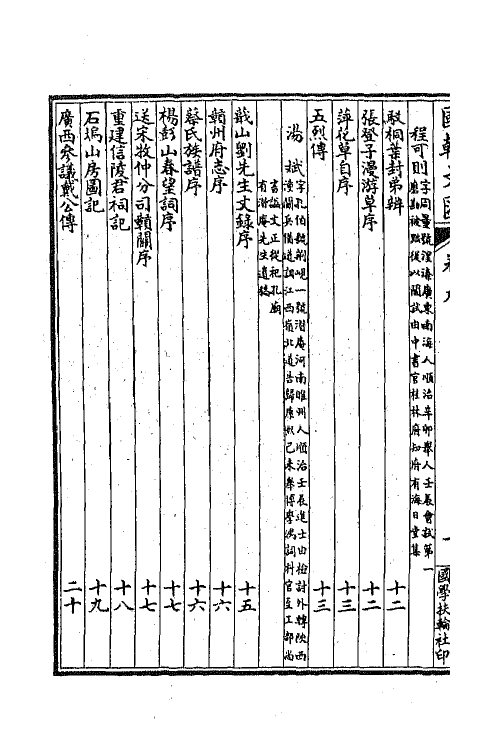 國朝文匯 卷九 一 國學扶輪社印
程可則 字周量號湟溱廣東南海人順治辛卯舉人壬辰會試第一
磨勘被黜後以閣試由中書官桂林府知府有海日堂集
駁桐葉封弟辨 十二
張登子漫游草序 十二
萍花草自序 十三
五烈傳 十三
湯斌 字孔伯號荆峴一號潛庵河南睢州人順治壬辰進士由檢討外轉陝西
潼關兵備道調江西嶺北道告歸康熙己未舉博學鴻詞科官至工部尚
書諡文正從祀孔廟
有潛庵先生遺稿
蕺山劉先生文錄序 十五
贛州府志序 十六
蔡氏族譜序 十六
楊彭山春望詞序 十七
送宋牧仲分司贛關序 十七
重建信陵君祠記 十八
石塢山房圖記 十九
廣西參議戴公傳 二十